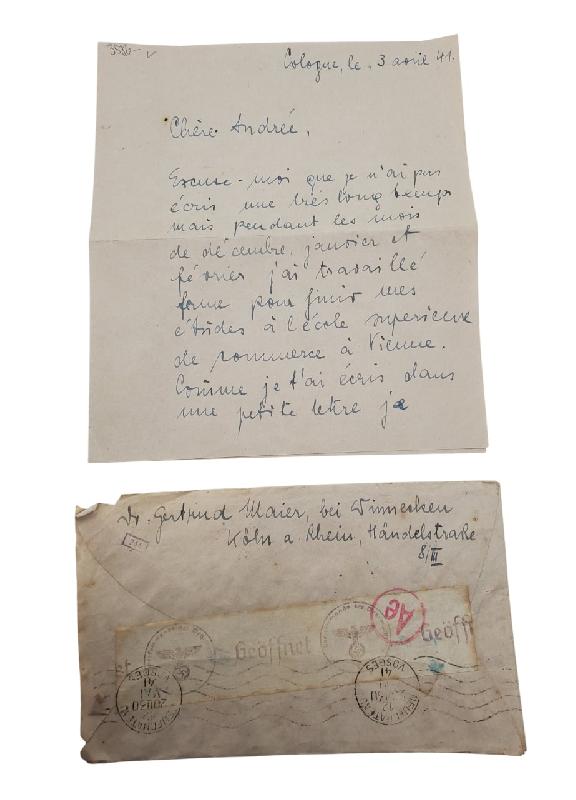 3836-
Cologne, le. 3 avril 41.
Chère Andrée,
Excuse-moi que je n'ai pas
écris une très long temps
mais pendant les mois
de décembre, janvier et
février j'ai travaillé
ferme pour finir mes
études à l'école superieure
de commerce à Vienne.
Comme je t'ai écris dans
une petite lettre je
Dr. Gertrud Maier, bei Winnecken
Köln a. Rhein, Händelstraße
8/III
Ae
Geöffnet
Geöff
VOSGES
41
VOSGES
41